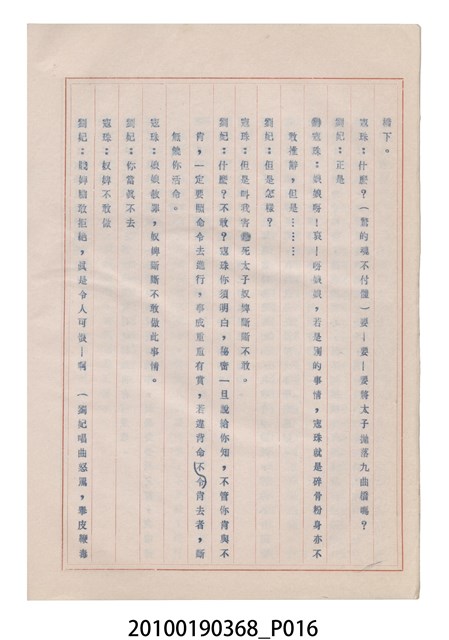 橋下。
寇珠：什麼？（驚的魂不付體）要—要—要將太子拋落九曲橋嗎？
劉妃：正是
寇珠：娘娘呀！哀—唔娘娘，若是別的事情，寇珠就是碎骨粉身亦不
敢推辭，但是………
劉妃：但是怎樣？
寇珠：但是叫我害死太子奴婢斷斷不敢。
劉妃：什麼？不敢？寇珠你須明白，秘密一旦說給你知，不管你肯與不
肯，一定要照命令去進行，事成重重有賞，若違背命令不肯去者，斷
無饒你活命。
寇珠：娘娘赦罪，奴婢斷斷不敢做此事情。
劉妃：你當真不去
寇珠：奴婢不敢做
劉妃：賤婢膽敢拒絕，真是令人可恨—啊 （劉妃唱曲怒風，舉皮鞭毒
20100190368_P016